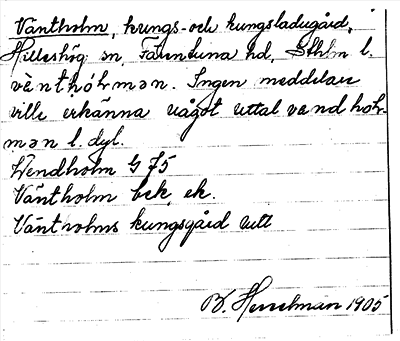 Väntholm, kungs- och kungsladugård,
Hilleshög sn, Färentuna hd, Sthlm l.
vènthólmən. Ingen meddelare
ville erkänna något uttal vandhol-
mən l. dyl.
Wendholm G 75
Väntholm bek. ek.
Väntholms kungsgård
B. Hesselman 1905